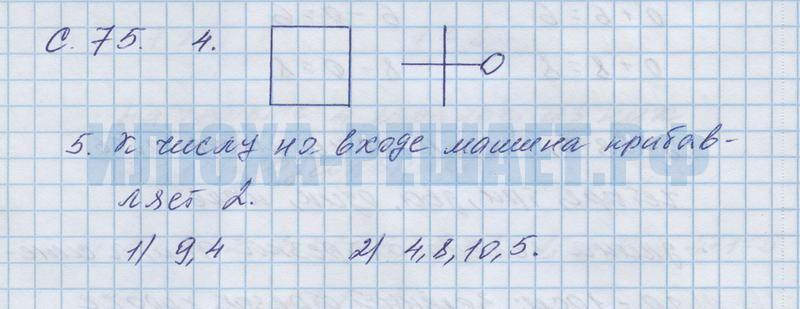 С. 75. 4.
5. К числу на входе машина прибав-
ляет 2.
1) 9,4 2) 4,8,10,5.
ИЛЮХА-РЕШАЕТ.РФ